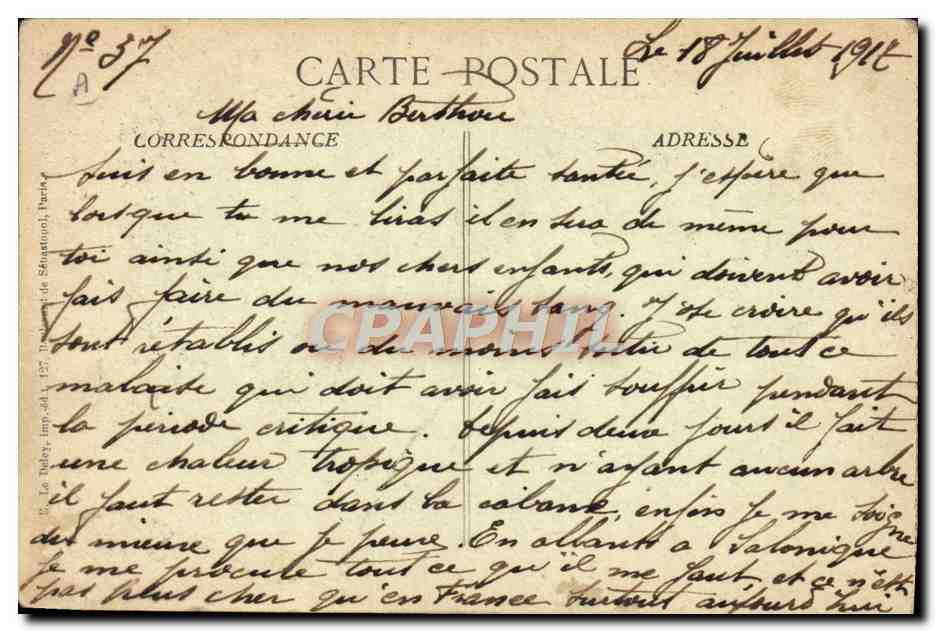 Nº 37
A
Le 18 Juillet 1917
CARTE POSTALE
Ma chérie Berthou
CORRESPONDANCE
ADRESSE
suis en bonne et parfaite santée, j'espère que
lorsque tu me liras il en sera de même pour
toi ainsi que nos chers enfants, qui doivent avoir
fais faire du mauvais sang. J'ose croire qu'ils
sont rétablis ou du moins sortie de tout ce
malaise qui doit avoir fais souffrir pendant
la période critique. Depuis deux jours il fait
une chaleur tropique et n'ayant aucun arbre
il faut rester dans la cabane, enfin je me soigne
du mieux que je peux. En allants a Salonique
je me procure tout ce qu'il me faut, et ce n'est
pas plus cher qu'en France surtout aujourd'hui
E. Le Deley, imp.-éd., 127, Boulevard de Sébastopol, Paris
CPAPHIL